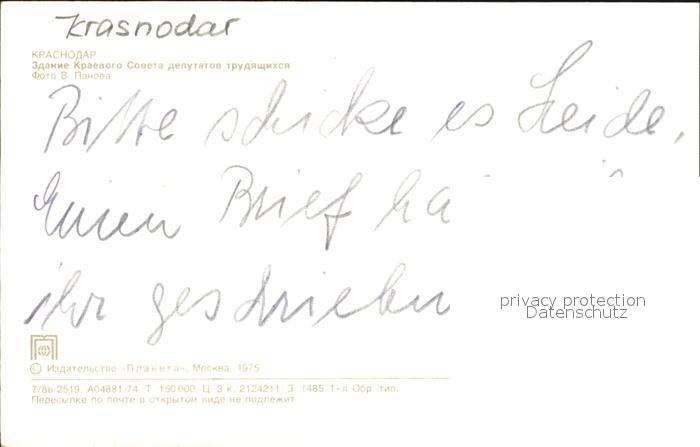 Krasnodar
КРАСНОДАР
Здание Краевого Совета депутатов трудящихся
Фото В. Панова
Bitte schicke es Heide,
Einen Brief ha
ihr geschrieben
privacy protection
Datenschutz
© Издательство «Планета». Москва, 1975
7/8в-2519. А04881-74. Т. 160 000. Ц. 3 к. 2124211. З. 1485. 1-я Обр. тип.
Пересылке по почте в открытом виде не подлежит